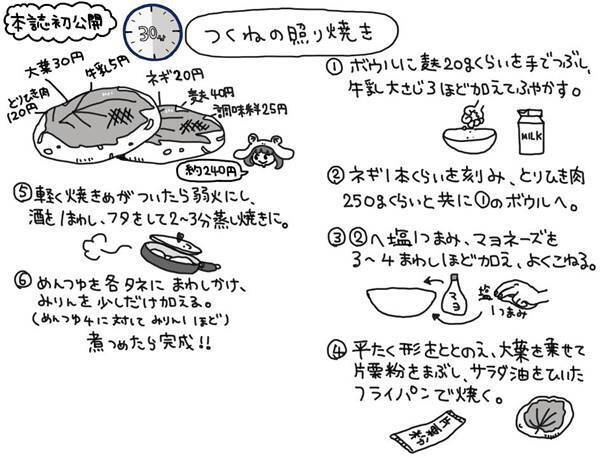 本誌初公開
30分
つくねの照り焼き
大葉30円
牛乳5円
とりひき肉
120円
ネギ20円
麩40円
調味料25円
約240円
① ボウルに麩20gくらいを手でつぶし、
牛乳大さじ3ほど加えてふやかす。
MILK
② ネギ1本くらいを刻み、とりひき肉
250gくらいと共に①のボウルへ。
③ ②へ塩1つまみ、マヨネーズを
3〜4まわしほど加え、よくこねる。
マヨ
塩
1つまみ
④ 平たく形をととのえ、大葉を乗せて
片栗粉をまぶし、サラダ油をひいた
フライパンで焼く。
片栗粉
⑤ 軽く焼きめがついたら弱火にし、
酒を1まわし、フタをして2〜3分蒸し焼きに。
⑥ めんつゆを各タネにまわしかけ、
みりんを少しだけ加える。
(めんつゆ4に対してみりん1ほど)
煮つめたら完成!!